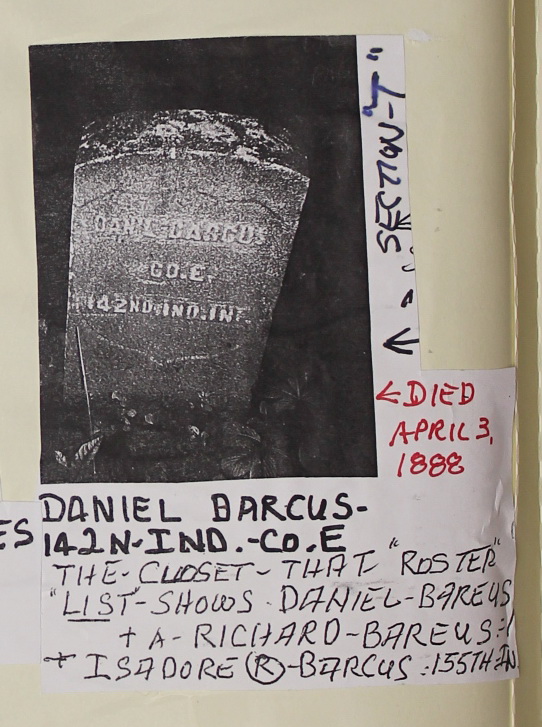 DANL. BARCUS
CO. E.
142ND. IND. INF.
SECTION-
←DIED
APRIL 3,
1888
ES
DANIEL BARCUS-
142N-IND.-CO.E
THE-CLOSET-THAT "ROSTER"
"LIST"-SHOWS-DANIEL-BAREUS
+ A-RICHARD-BAREUS:
+ ISADORE Ⓡ-BARCUS:155TH-IN